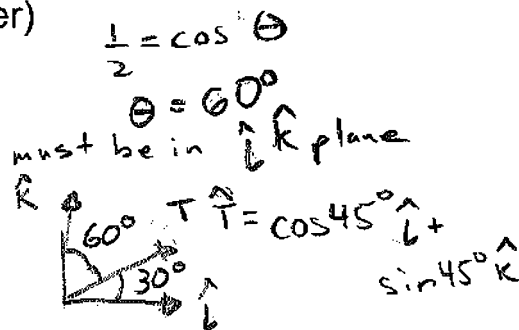 er)
1/2 = cos θ
θ = 60°
must be in î k̂ plane
k̂
60°
30°
î
T T̂ = cos 45° î +
sin 45° k̂